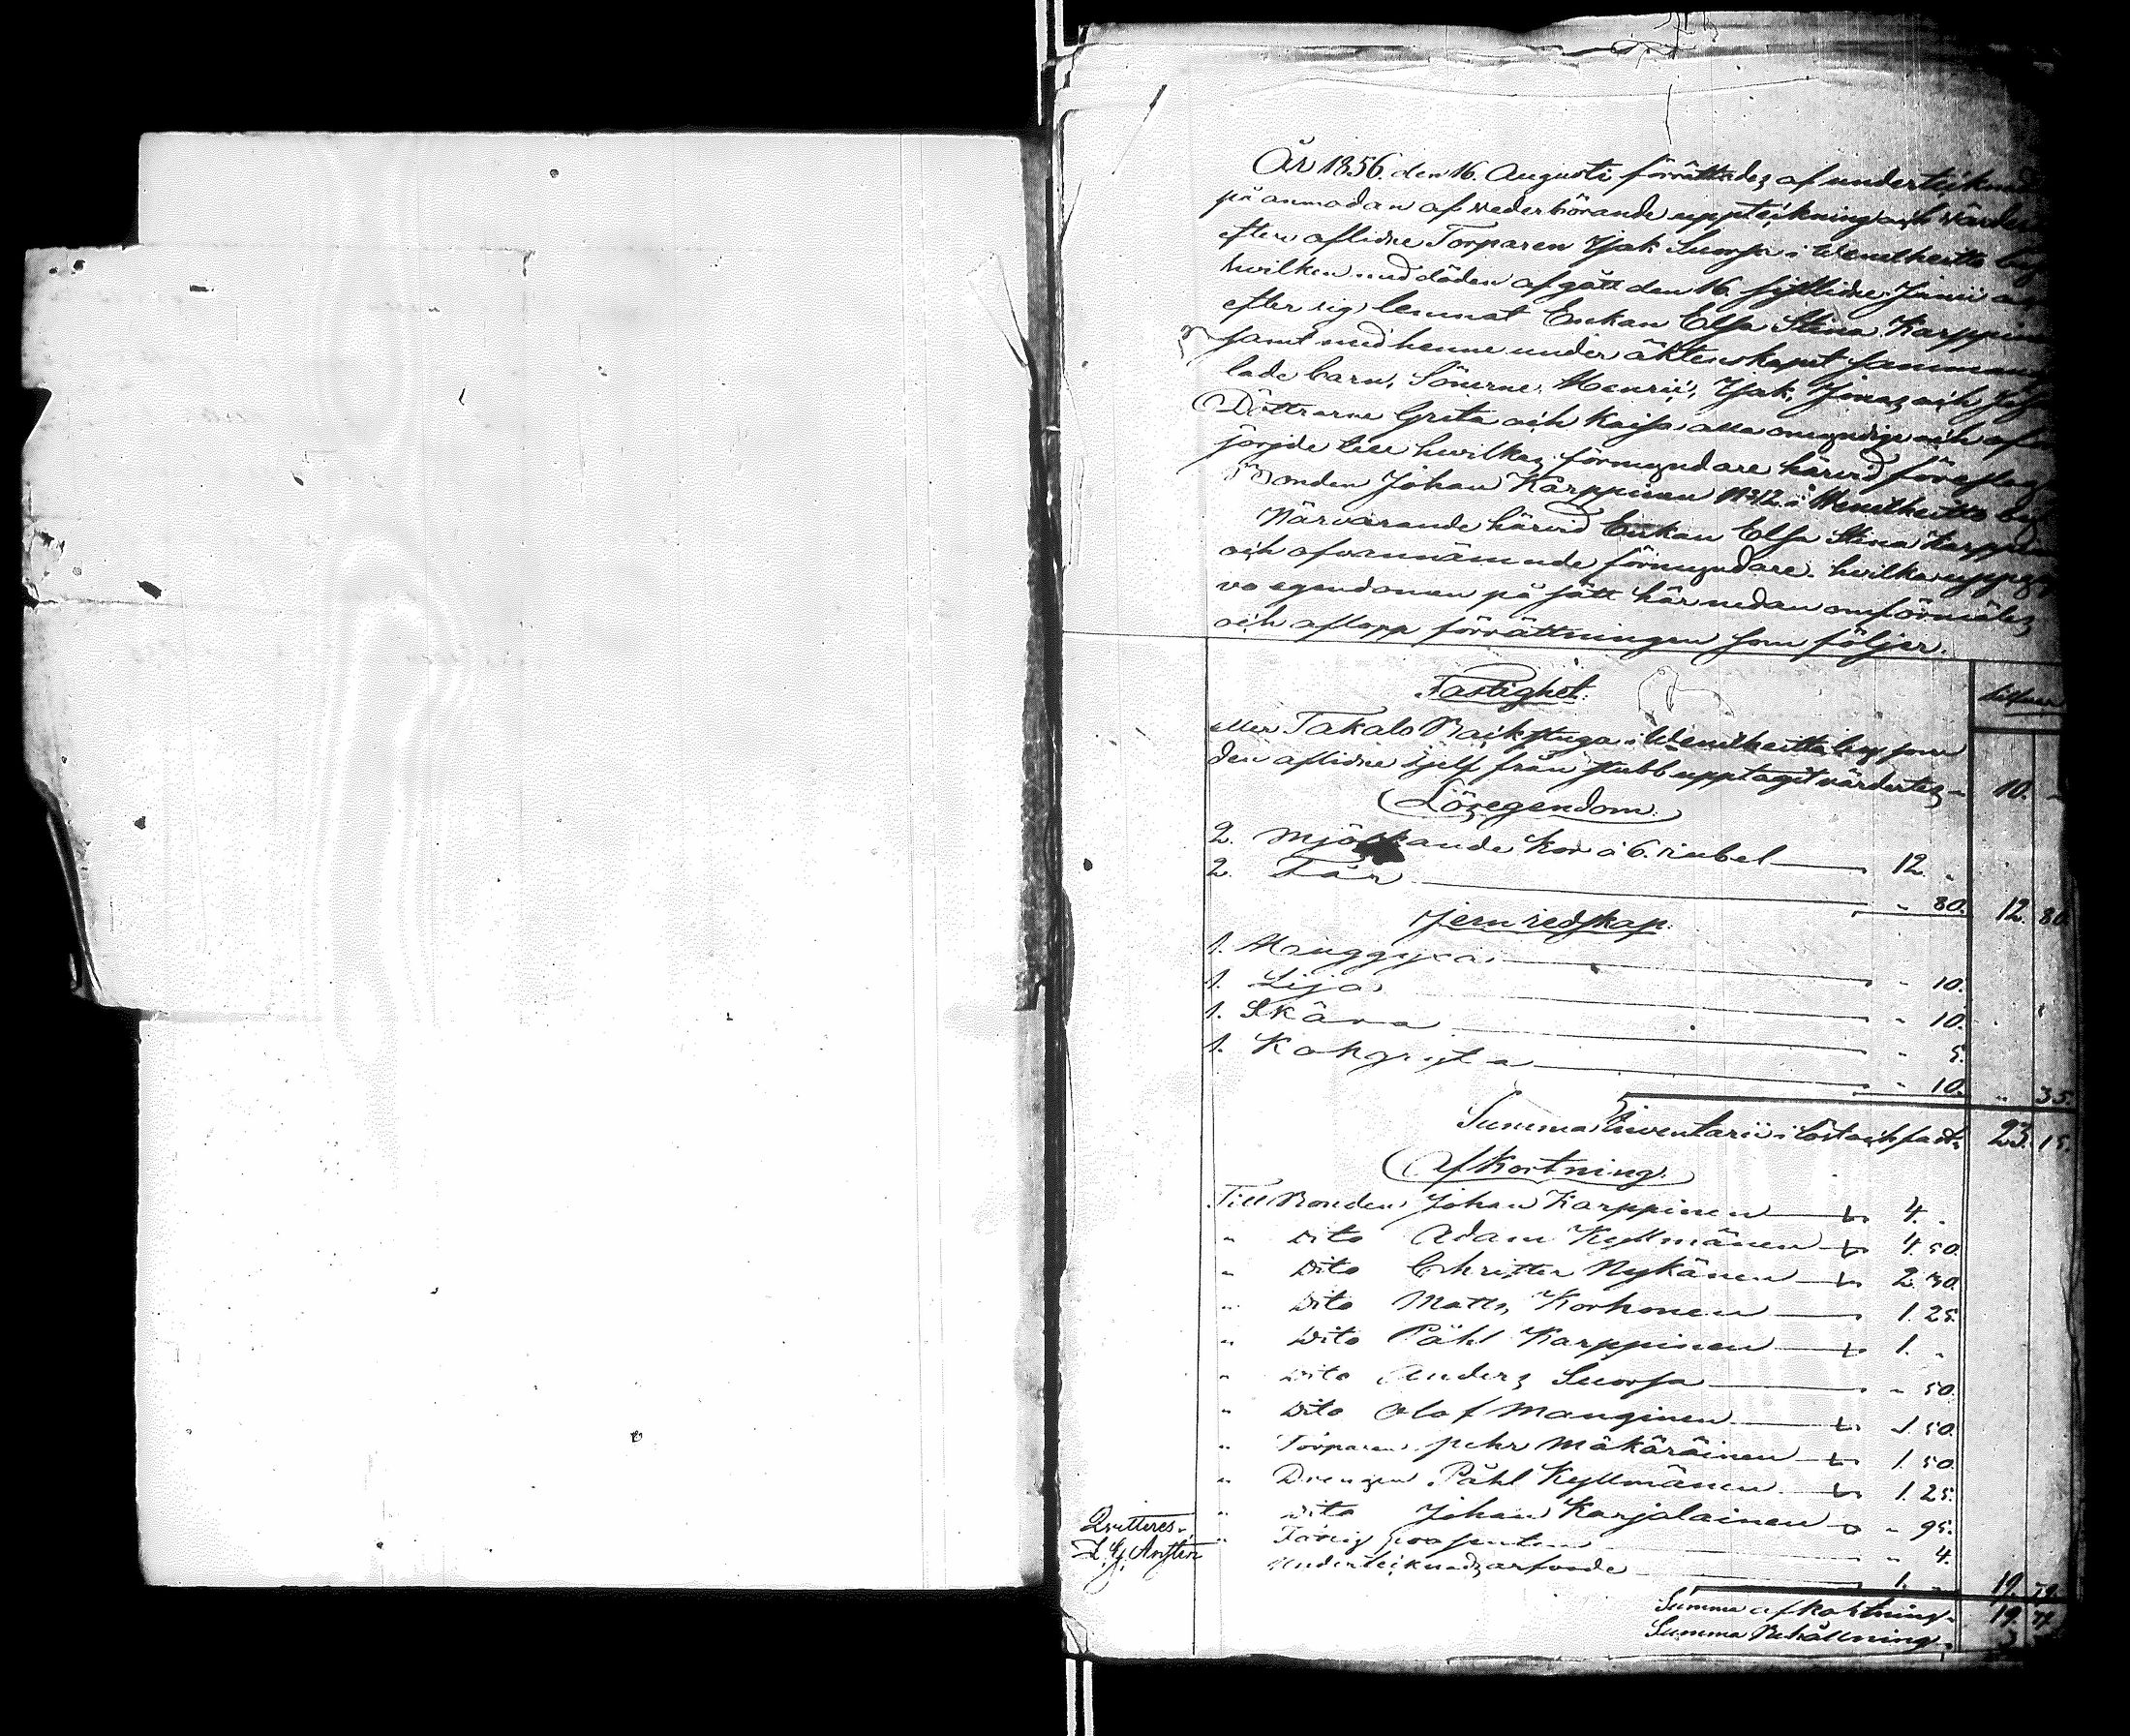 År 1856. den 16. Augusti förrättades af underteikned
på anmodan af vederbörande uppteikning och värder
efter aflidne Torparen Isak Suorsa i Wenetheitto by
hvilken med döden afgått den 16. sistlidne Junii och
efter sig lemnat Enkan Elsa Stina Karppinen
samt med henne under äktenskapet sammanaf
lade barn, Sönerne Henric, Isak, Jonas och Joh
Döttrarne Greta och Kaisa alla omyndige och
till hvilkas förmyndare härvid föreslogs
Bonden Johan Karppinen No 12. i Wenetheitto by
Närvarande härvid Enkan Elsa Stina Karppinen
och ofvannämnde förmyndare. hvilka uppgof
vo egendomen på sätt här nedan omförmäles
och aflopp förrättningen som följer.
Fastighet.
eller Takalo Backstuga i Wenetheitto by som
den aflidne sjelf från stubb upptagit värdertes 10. -
Lösegendom.
2. Mjölkande Kor a 6. rubel 12. -
2. Får - 80. 12. 80
Jern redskap.
1. Huggyxa - 10.
1. Lija - 10.
1. Skära - 5.
1. Kokgryta - 10. " 35.
Summa Inventarii i löst och fast 23. 15.
Afkortning.
Till Bonden Johan Karppinen 4. -
" Dito Adam Kyllmänen 4. 50.
" Dito Christer Nykänen 2. 30.
" Dito Matts Korhonen 1. 25.
" Dito Påhl Karppinen 1. -
" Dito Anders Suorsa - 50.
" Dito Olof Manginen 1. 50.
" Torparen Pehr Mäkäräinen 1. 50.
" Drengen Påhl Kyllmänen 1. 25.
" Dito Johan Karjalainen - 95.
" Fattig procenten " 4.
Underteiknads arfvode 1. - 19. 79.
Qvitteres.
Summa afkortning 19. 79
Summa Behållning 3